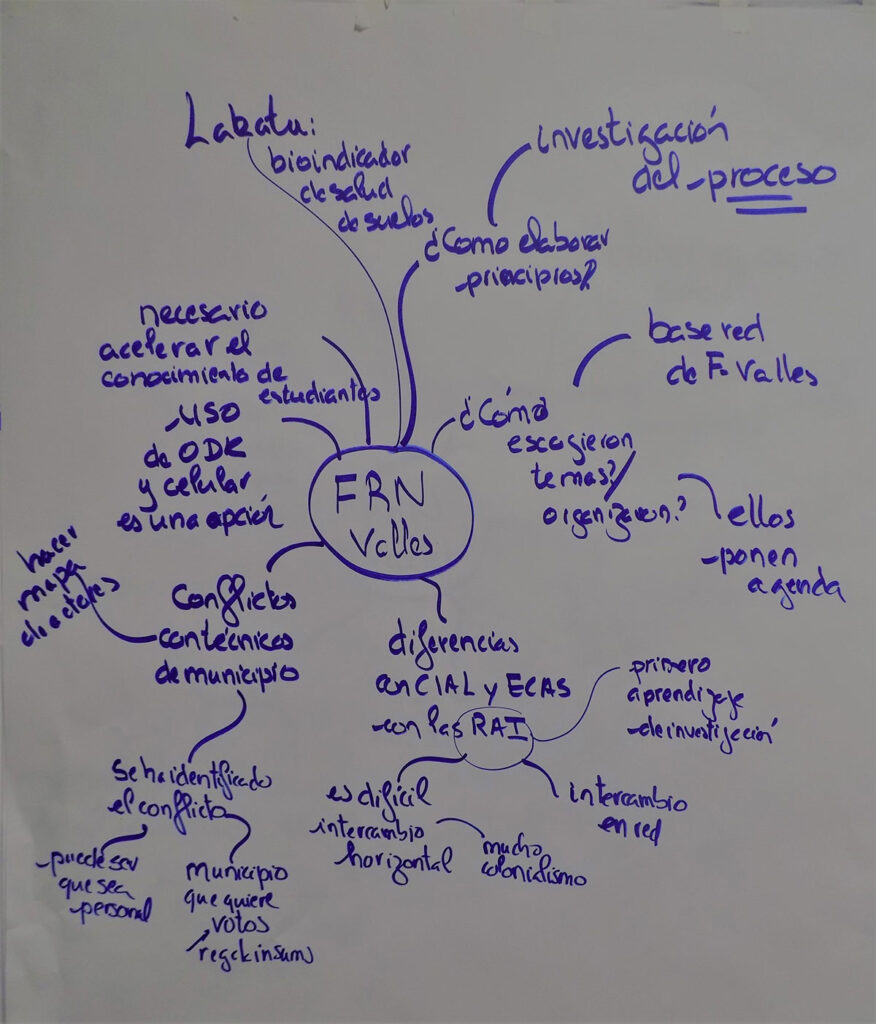 Labatu:
bioindicador
de salud
de suelos
investigación
del proceso
¿Como elaborar
principios?
necesario
acelerar el
conocimiento de
estudiantes
uso
de ODK
y celular
es una opción
base red
de F. Valles
¿Cómo
escogieron
temas?/
organizaron?
ellos
ponen
agenda
FRN
Valles
hacer
mapa
de actores
Conflictos
con técnicos
de municipio
diferencias
con CIAL y ECAS
con las RAI
primero
aprendizaje
de investigación
intercambio
en red
es difícil
intercambio
horizontal
mucho
colonialismo
se ha identificado
el conflicto
puede ser
que sea
personal
municipio
que quiere
votos